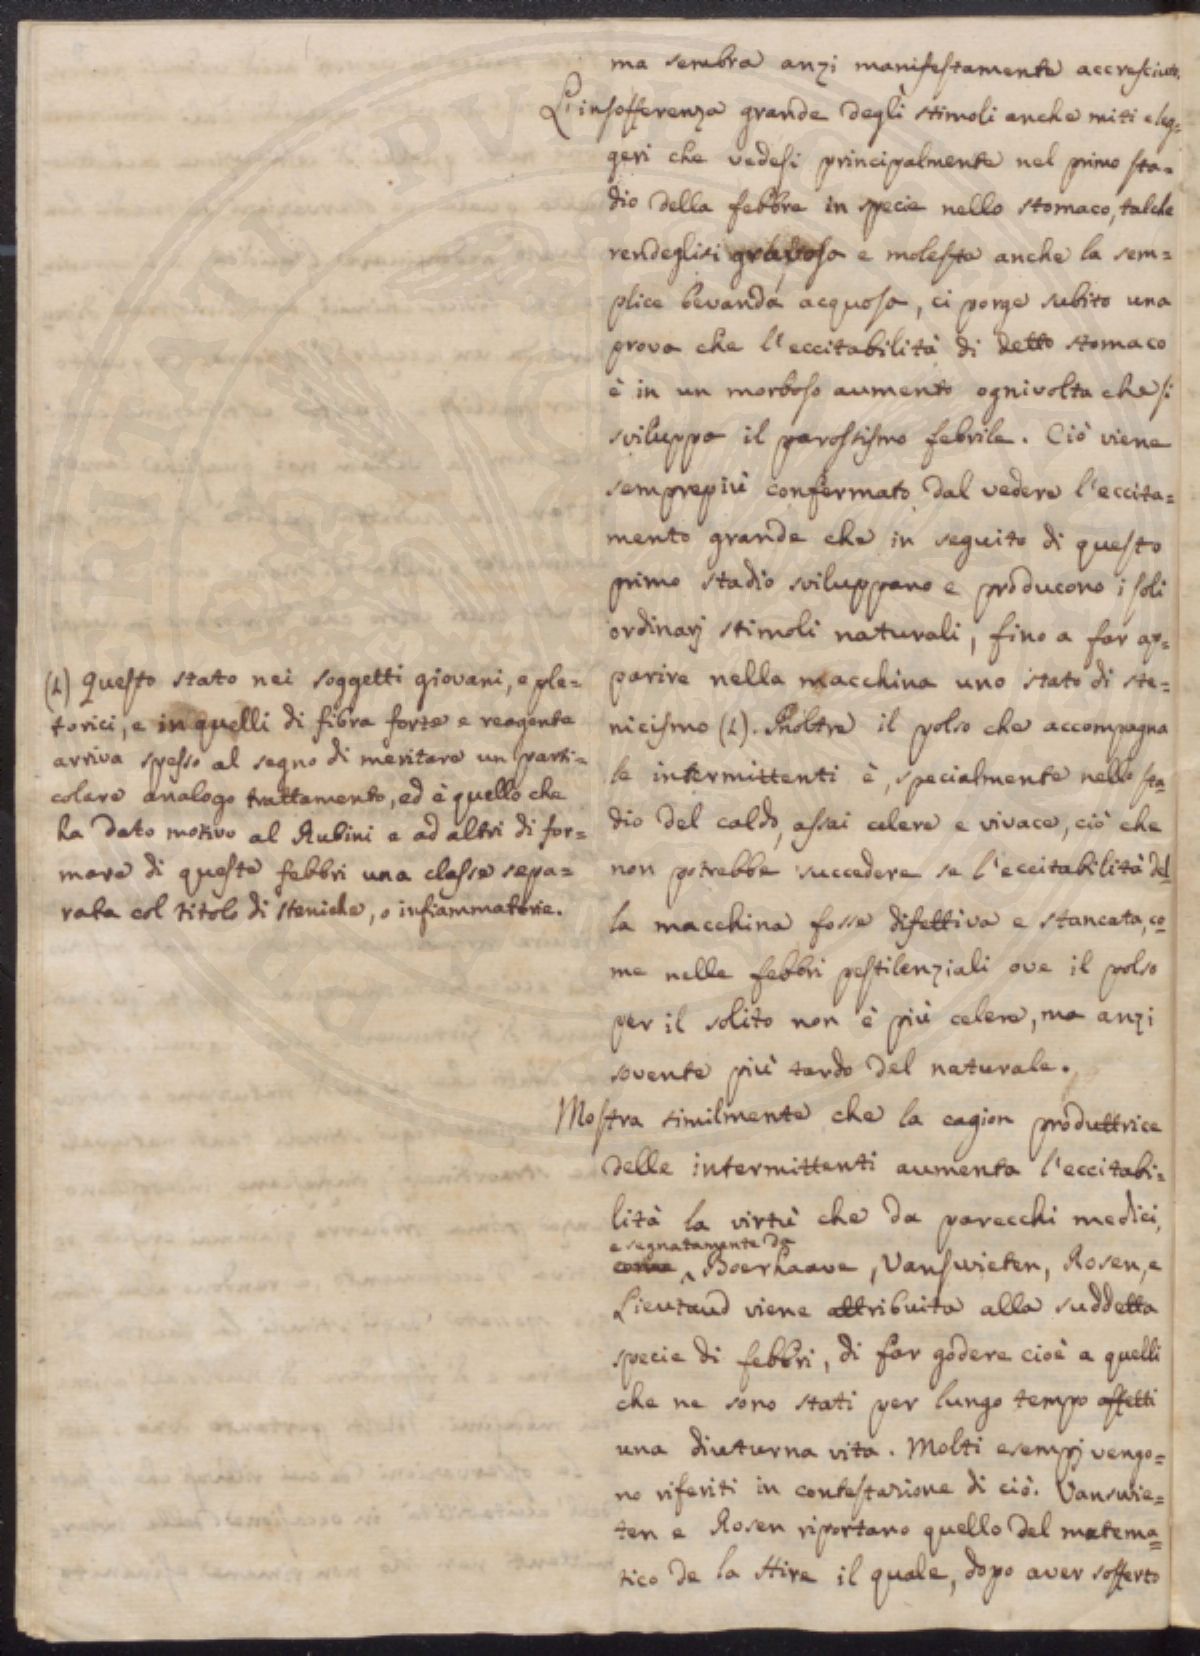 ma sembra anzi manifestamente accresciuta.
L'insofferenza grande degli stimoli anche miti e leg=
geri che vedesi principalmente nel primo sta=
dio della febbre in specie nello stomaco, talche
rendeglisi gravosa e molesta anche la sem=
plice bevanda acquosa, ci porge subito una
prova che l'eccitabilità di detto stomaco
è in un morboso aumento ognivolta che si
sviluppa il parossismo febrile. Ciò viene
semprepiù confermato dal vedere l'eccita=
mento grande che in seguito di questo
primo stadio sviluppano e producono i soli
ordinarj stimoli naturali, fino a far ap=
parire nella macchina uno stato di ste=
nicismo (1). Inoltre il polso che accompagna
le intermittenti è, specialmente nello sta=
dio del caldo, assai celere e vivace, ciò che
non potrebbe succedere se l'eccitabilità del=
la macchina fosse difettiva e stancata, co=
me nelle febbri pestilenziali ove il polso
per il solito non è più celere, ma anzi
sovente più tardo del naturale.
Mostra similmente che la cagion produttrice
delle intermittenti aumenta l'eccitabi=
lità la virtù che da parecchi medici,
e segnatamente da
come Boerhaave, Vanswieten, Rosen, e
Lieutaud viene attribuita alla suddetta
specie di febbri, di far godere cioè a quelli
che ne sono stati per lungo tempo affetti
una diuturna vita. Molti esempj vengo=
no riferiti in contestazione di ciò. Vanswie=
ten e Rosen riportano quello del matema=
tico de la Hire il quale, dopo aver sofferto
(1) Questo stato nei soggetti giovani, e ple=
torici, e in quelli di fibra forte e reagente
arriva spesso al segno di meritare un parti=
colare analogo trattamento, ed è quello che
ha dato motivo al Rubini e ad altri di for=
mare di queste febbri una classe sepa=
rata col titolo di steniche, o infiammatorie.